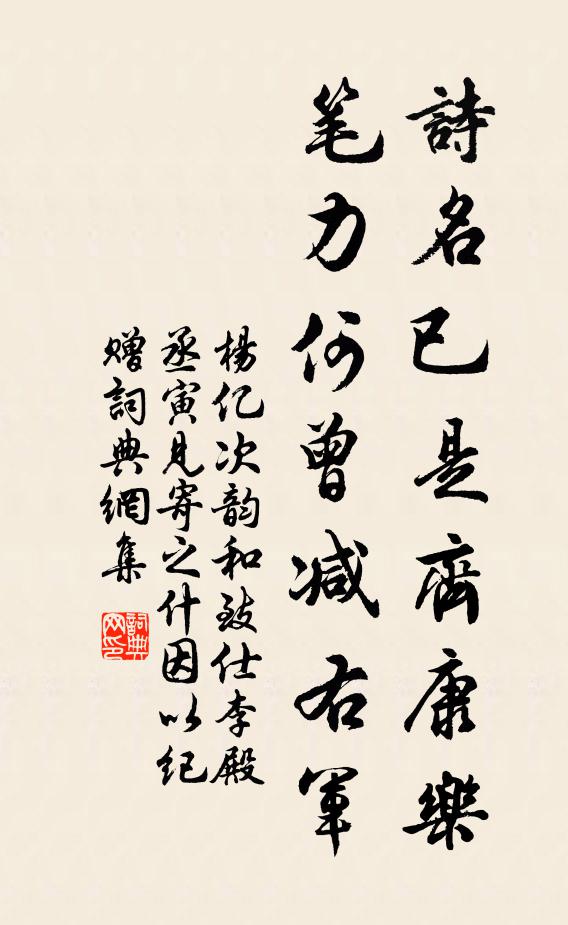 詩名已是齊康樂
笔力何曾减右軍
楊亿次韵和致仕李殿
丞寅見寄之什因以纪
赠詞典網集
詞典
网印